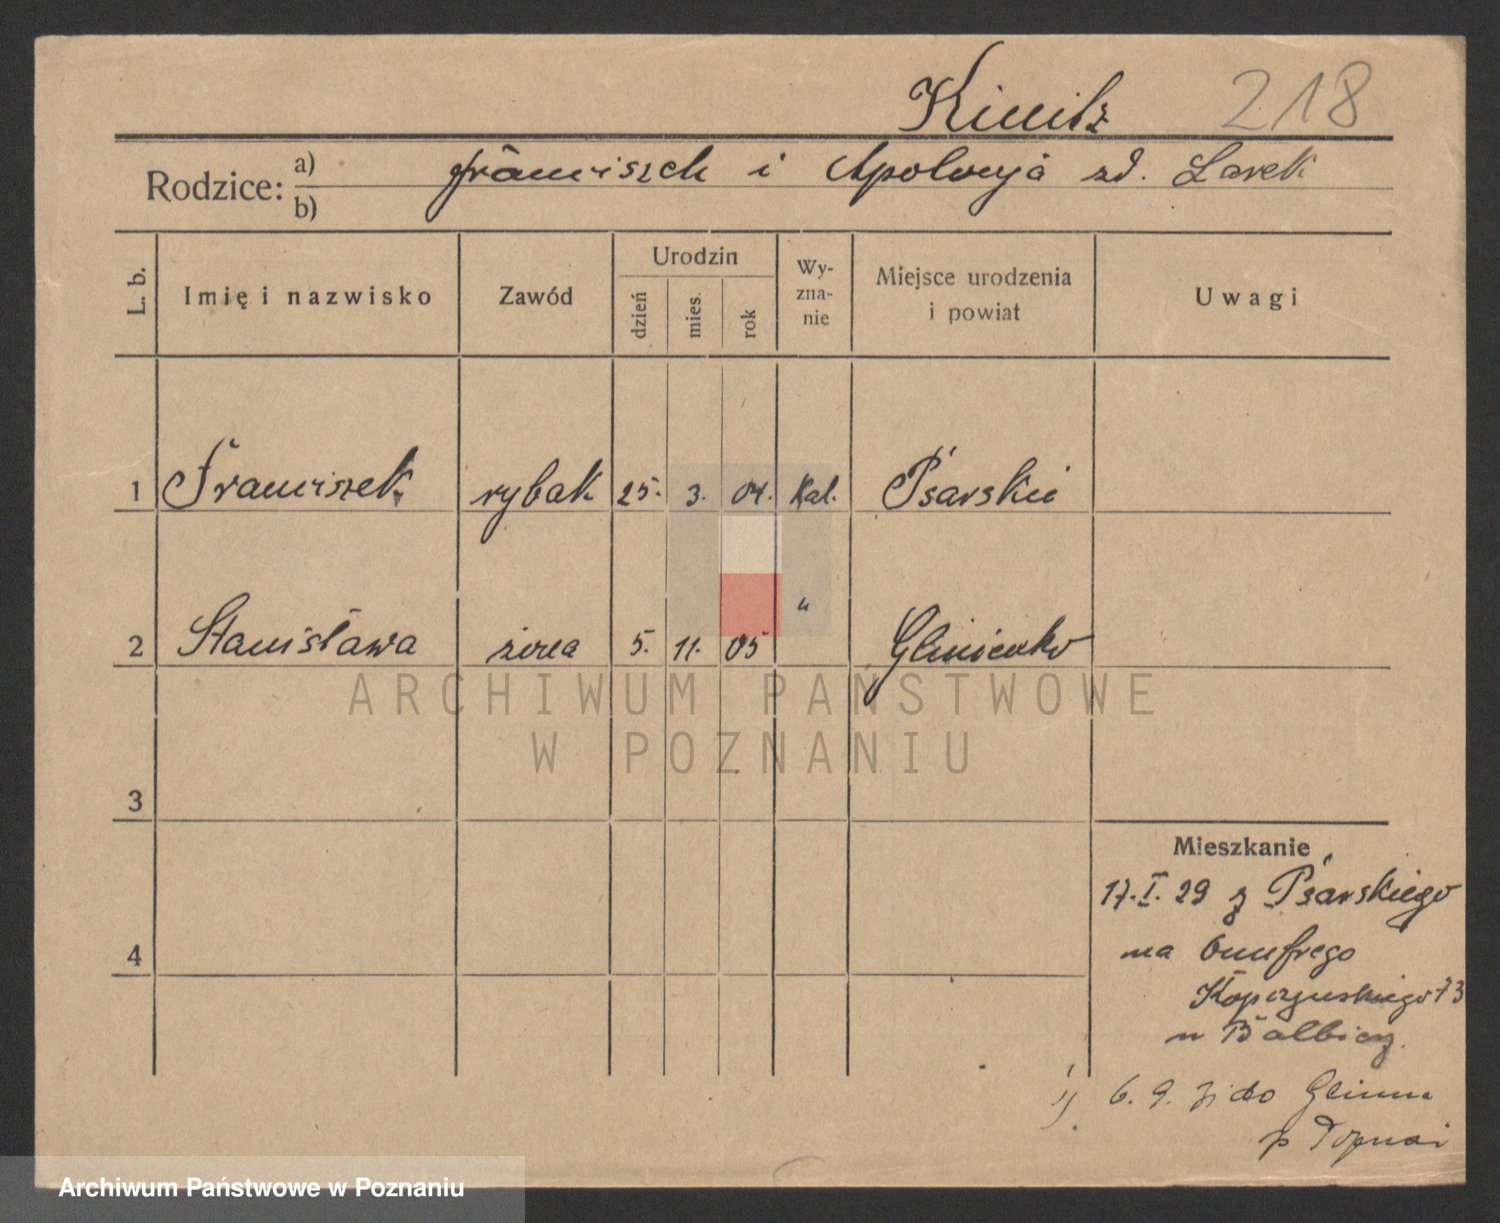 218
Rodzice: a) Franciszek i Apolonja zd. Larek
b)
L. b. Imię i nazwisko Zawód Urodzin dzień mies. rok Wy-zna-nie Miejsce urodzenia i powiat Uwagi
1 Franciszek rybak 25. 3. 04. Kat. Psarskie
2 Stanisława żona 5. 11. 05 " Glinienko
ARCHIWUM PAŃSTWOWE
W POZNANIU
3
Mieszkanie
17.I.29 z Psarskiego
4
na
73
u
6. 9. do Glinna
p
Archiwum Państwowe w Poznaniu